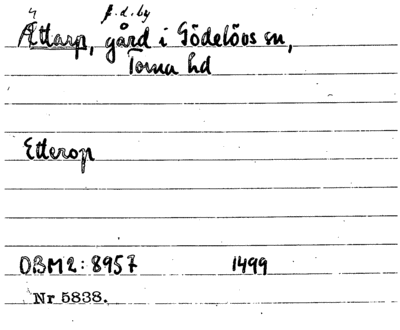 f. d. by
Ättarp, gård i Gödelövs sn,
Torna hd
Etterop
OBM2: 8957 1499
Nr 5838.